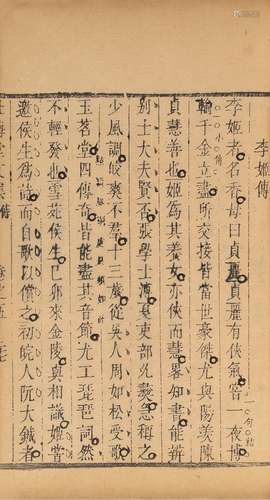 李姬傳
李姬者名香母曰貞麗貞麗有俠氣嘗一夜博
輸千金立盡所交接皆當世豪傑尤與陽羨陳
貞慧善也姬為其養女亦俠而慧畧知書能辨
别士大夫賢否張學士溥夏吏部允彝亟稱之
少風調皎爽不羣十三歲從吳人周如松受歌
玉茗堂四傳奇皆能盡其音節尤工琵琶詞然
不輕發也雪苑侯生己卯來金陵與相識姬嘗
邀侯生為詩而自歌以償之初皖人阮大鋮者